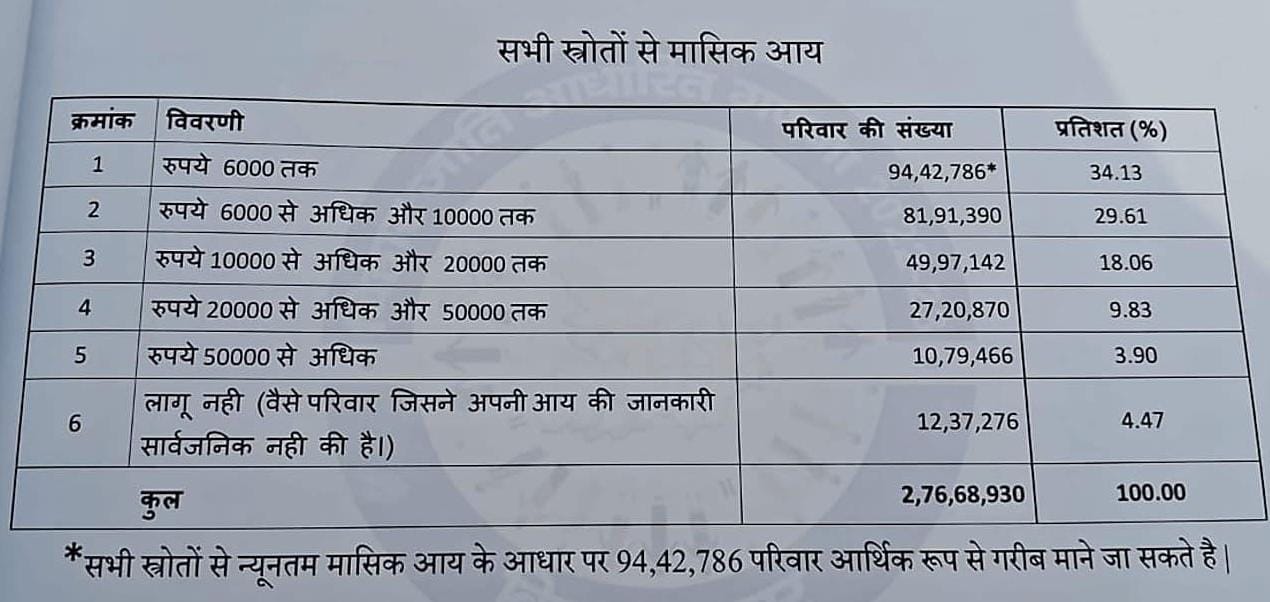 सभी स्त्रोतों से मासिक आय
क्रमांक विवरणी परिवार की संख्या प्रतिशत (%)
1 रुपये 6000 तक 94,42,786* 34.13
2 रुपये 6000 से अधिक और 10000 तक 81,91,390 29.61
3 रुपये 10000 से अधिक और 20000 तक 49,97,142 18.06
4 रुपये 20000 से अधिक और 50000 तक 27,20,870 9.83
5 रुपये 50000 से अधिक 10,79,466 3.90
6 लागू नही (वैसे परिवार जिसने अपनी आय की जानकारी
सार्वजनिक नही की है।) 12,37,276 4.47
कुल 2,76,68,930 100.00
*सभी स्त्रोतों से न्यूनतम मासिक आय के आधार पर 94,42,786 परिवार आर्थिक रूप से गरीब माने जा सकते है|